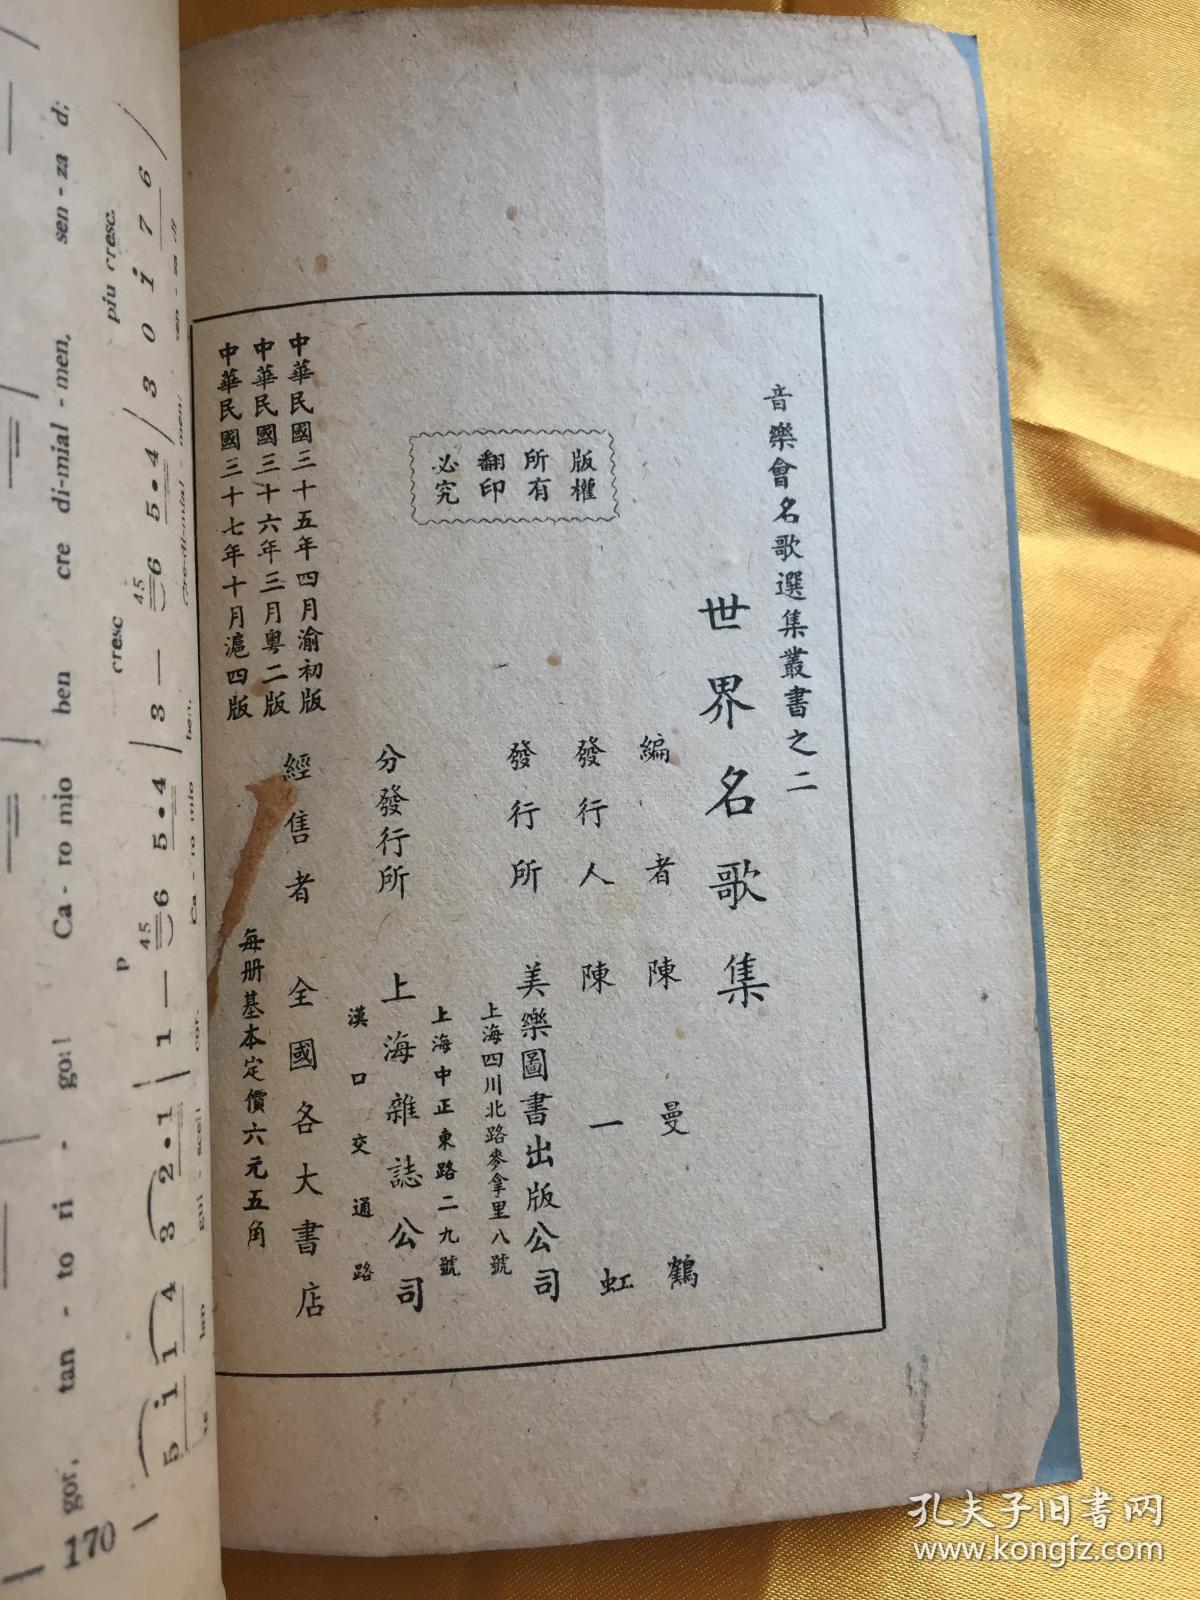 音樂會名歌選集叢書之二
世界名歌集
編者 陳曼鶴
發行人 陳一虹
發行所 美樂圖書出版公司
上海四川北路麥拿里八號
上海中正東路二九號
分發行所 上海雜誌公司
漢口交通路
經售者 全國各大書店
每册基本定價六元五角
版權
所有
翻印
必究
中華民國三十五年四月渝初版
中華民國三十六年三月粵二版
中華民國三十七年十月滬四版
gor, tan - to ri - gor! Ca - ro mio ben cre di-mial - men, sen - za di
p cresc piu cresc.
5 i 1 4 3 2 • 1 | 1 — 6 5 • 4 / 3 — 6 5 • 4 / 3 0 i 7 6 /
45 45
Ca - ro mio ben, Cre-di-mial - men, sen - za di
170
孔夫子旧书网
www.kongfz.com